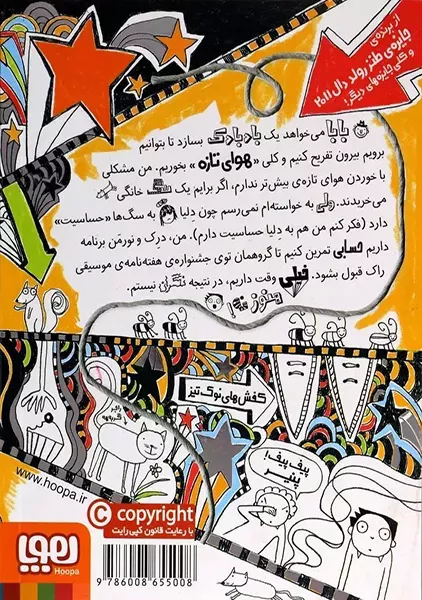 از برنده‌ی
جایزه‌ی طنز رولد دال ۲۰۱۱
و کلی جایزه‌های دیگر!
بابا می‌خواهد یک بادبادک بسازد تا بتوانیم
برویم بیرون تفریح کنیم و کلی «هوای تازه» بخوریم. من مشکلی
با خوردن هوای تازه‌ی بیش‌تر ندارم، اگر برایم یک سگ خانگی
می‌خریدند. ولی به خواسته‌ام نمی‌رسم چون دِلیا به سگ‌ها «حساسیت»
دارد (فکر کنم من هم به دِلیا حساسیت دارم). من، دِرِک و نورمن برنامه
داریم حسابی تمرین کنیم تا گروهمان توی جشنواره‌ی هفته‌نامه‌ی موسیقی
راک قبول بشود. خیلی وقت داریم، در نتیجه نگران نیستم.
هنوز نه!
کفش‌های نوک‌تیز
پیف پیف!
پنیر
www.hoopa.ir
© copyright
با رعایت قانون کپی‌رایت
هوپا
Hoopa
9 786008 655008